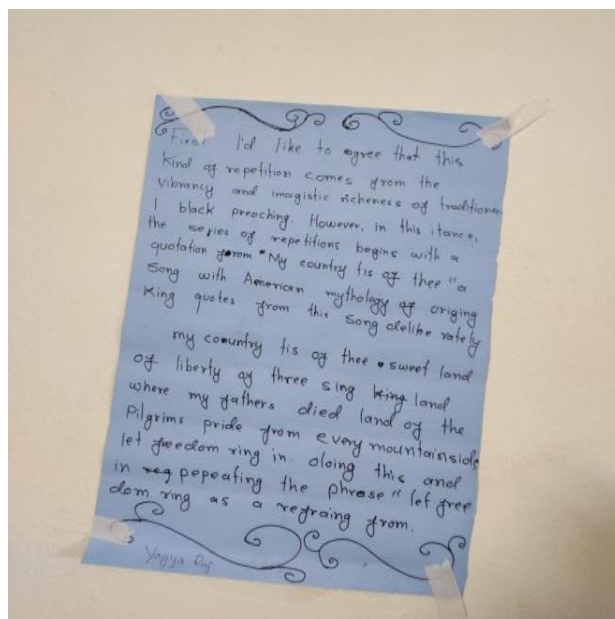 First I'd like to agree that this
kind of repetition comes from the
vibrancy and imagistic richeness of traditionan
l black preaching. However, in this itance,
the series of repetitions begins with a
quotation from "My country tis of thee "a
Song with American mythology of origing
King quotes from this song delibe rately
my country tis of thee sweet land
of liberty of three sing king land
where my fathers died land of the
Pilgrims pride from every mountainside
let freedom ring in. oloing this and
in reg pepeating the phrase "let free
dom ring as a refraing from.
Yagya Raj